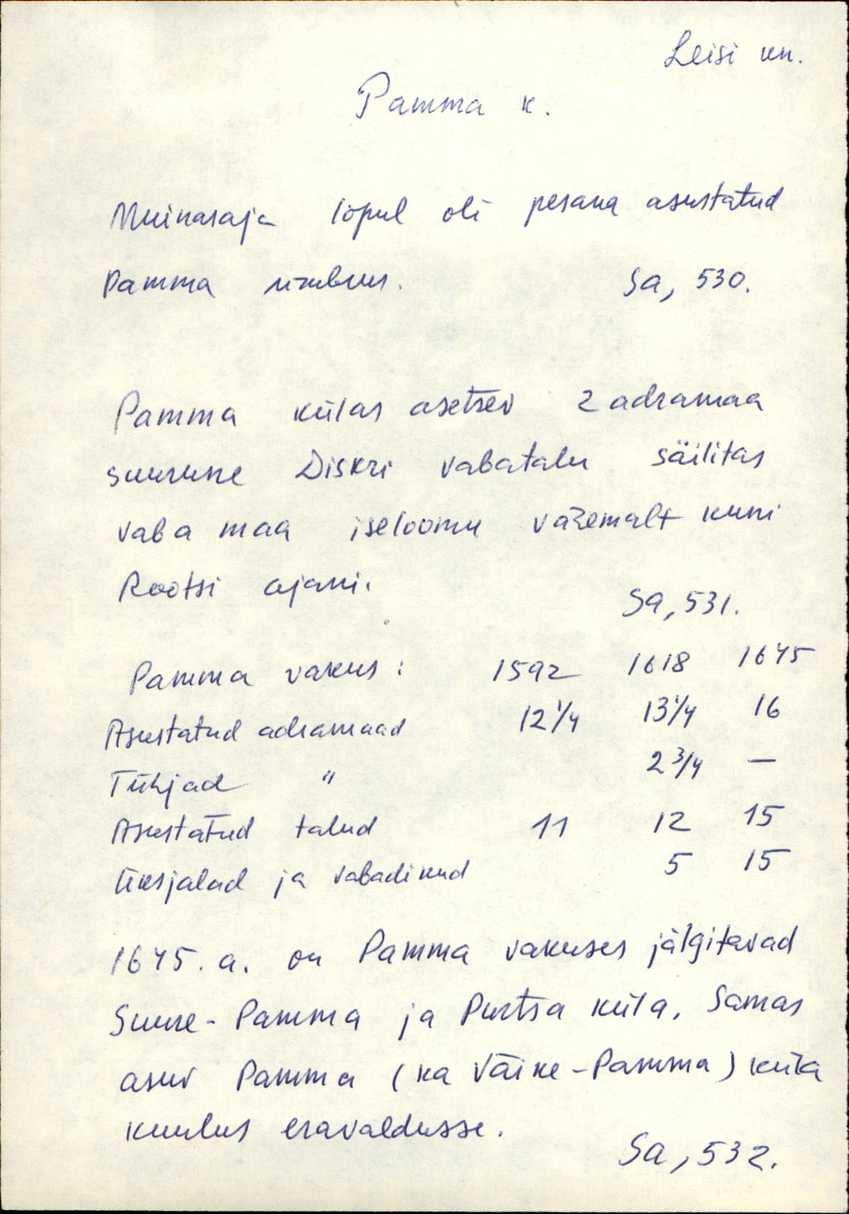 Leisi kn.
Pamma k.
Muinasaja lõpul oli pesana asustatud
Pamma ümbrus. Sa, 530.
Pamma külas asetsev 2 adramaa
suurune Diskri vabatalu säilitas
vaba maa iseloomu vähemalt kuni
Rootsi ajani. Sa, 531.
Pamma vakus: 1592 1618 1645
Asustatud adramaad 12 1/4 13 1/4 16
Tühjad " 2 3/4 —
Asustatud talud 11 12 15
Üksjalad ja vabadikud 5 15
1645. a. on Pamma vakuses jälgitavad
Suure-Pamma ja Purtsa küla. Samas
asuv Pamma (ka Väike-Pamma) küla
kuulus eravaldusse.
Sa, 532.